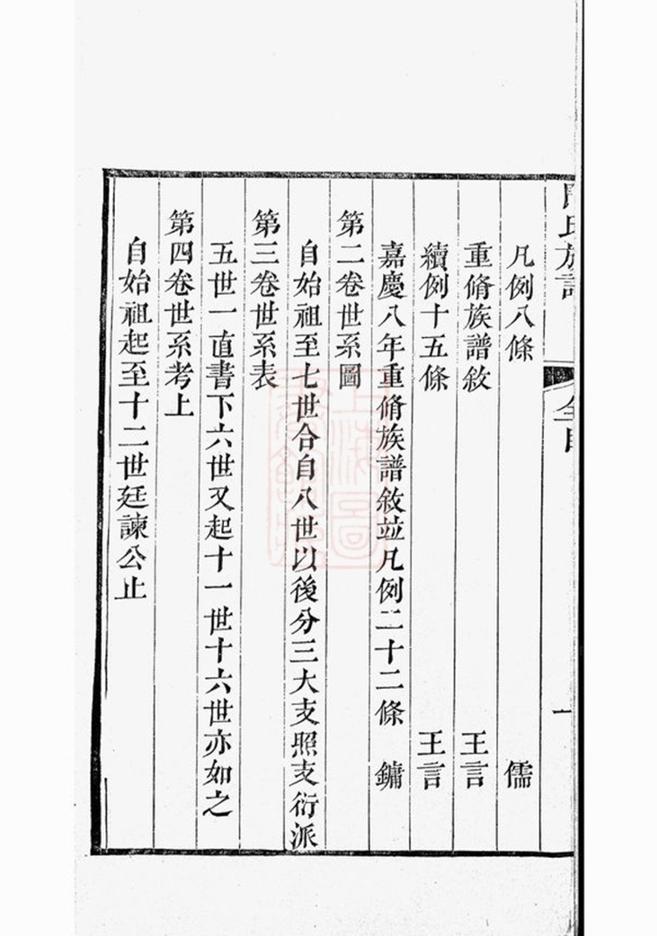 氏族譜 全目 一
凡例八條 儒
重脩族譜敘 王言
續例十五條 王言
嘉慶八年重脩族譜敘竝凡例二十二條 鏞
第二卷世系圖
自始祖至七世合自八世以後分三大支照支衍派
第三卷世系表
五世一直書下六世又起十一世十六世亦如之
第四卷世系考上
自始祖起至十二世廷諫公止
上海圖